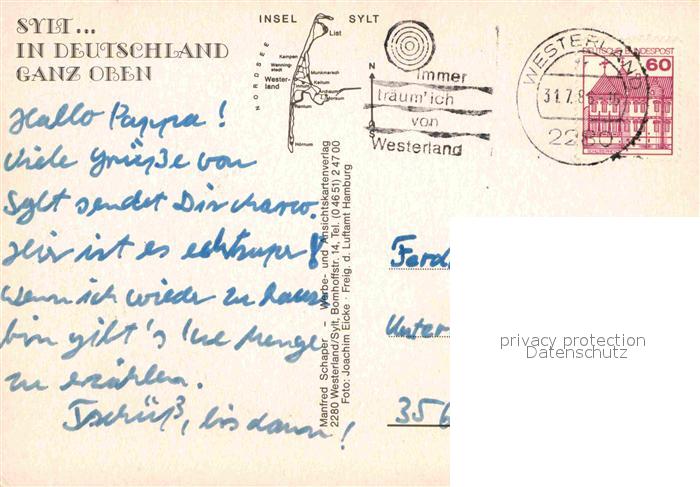 SYLT...
IN DEUTSCHLAND
GANZ OBEN
INSEL SYLT
NORDSEE
List
Kampen
Wenning-
stedt
Wester-
land
Munkmarsch
Keitum
Archsum
Morsum
Rantum
Hörnum
N
S
Immer
träum'ich
von
Westerland
WESTERLAND
31.7.8
2280
DEUTSCHE BUNDESPOST
60
Hallo Pappa!
Viele Grüße von
Sylt sendet Dir
Hier ist es echt super!
Wenn ich wieder zu Hause
bin gibt's 'ne Menge
zu erzählen.
Tschüß, bis dann!
Manfred Schaper – Werbe- und Ansichtskartenverlag
2280 Westerland/Sylt, Bomhoffstr. 14, Tel. (0 46 51) 2 47 00
Foto: Joachim Eicke · Freig. d. Luftamt Hamburg
Ferd
Unter
356
privacy protection
Datenschutz